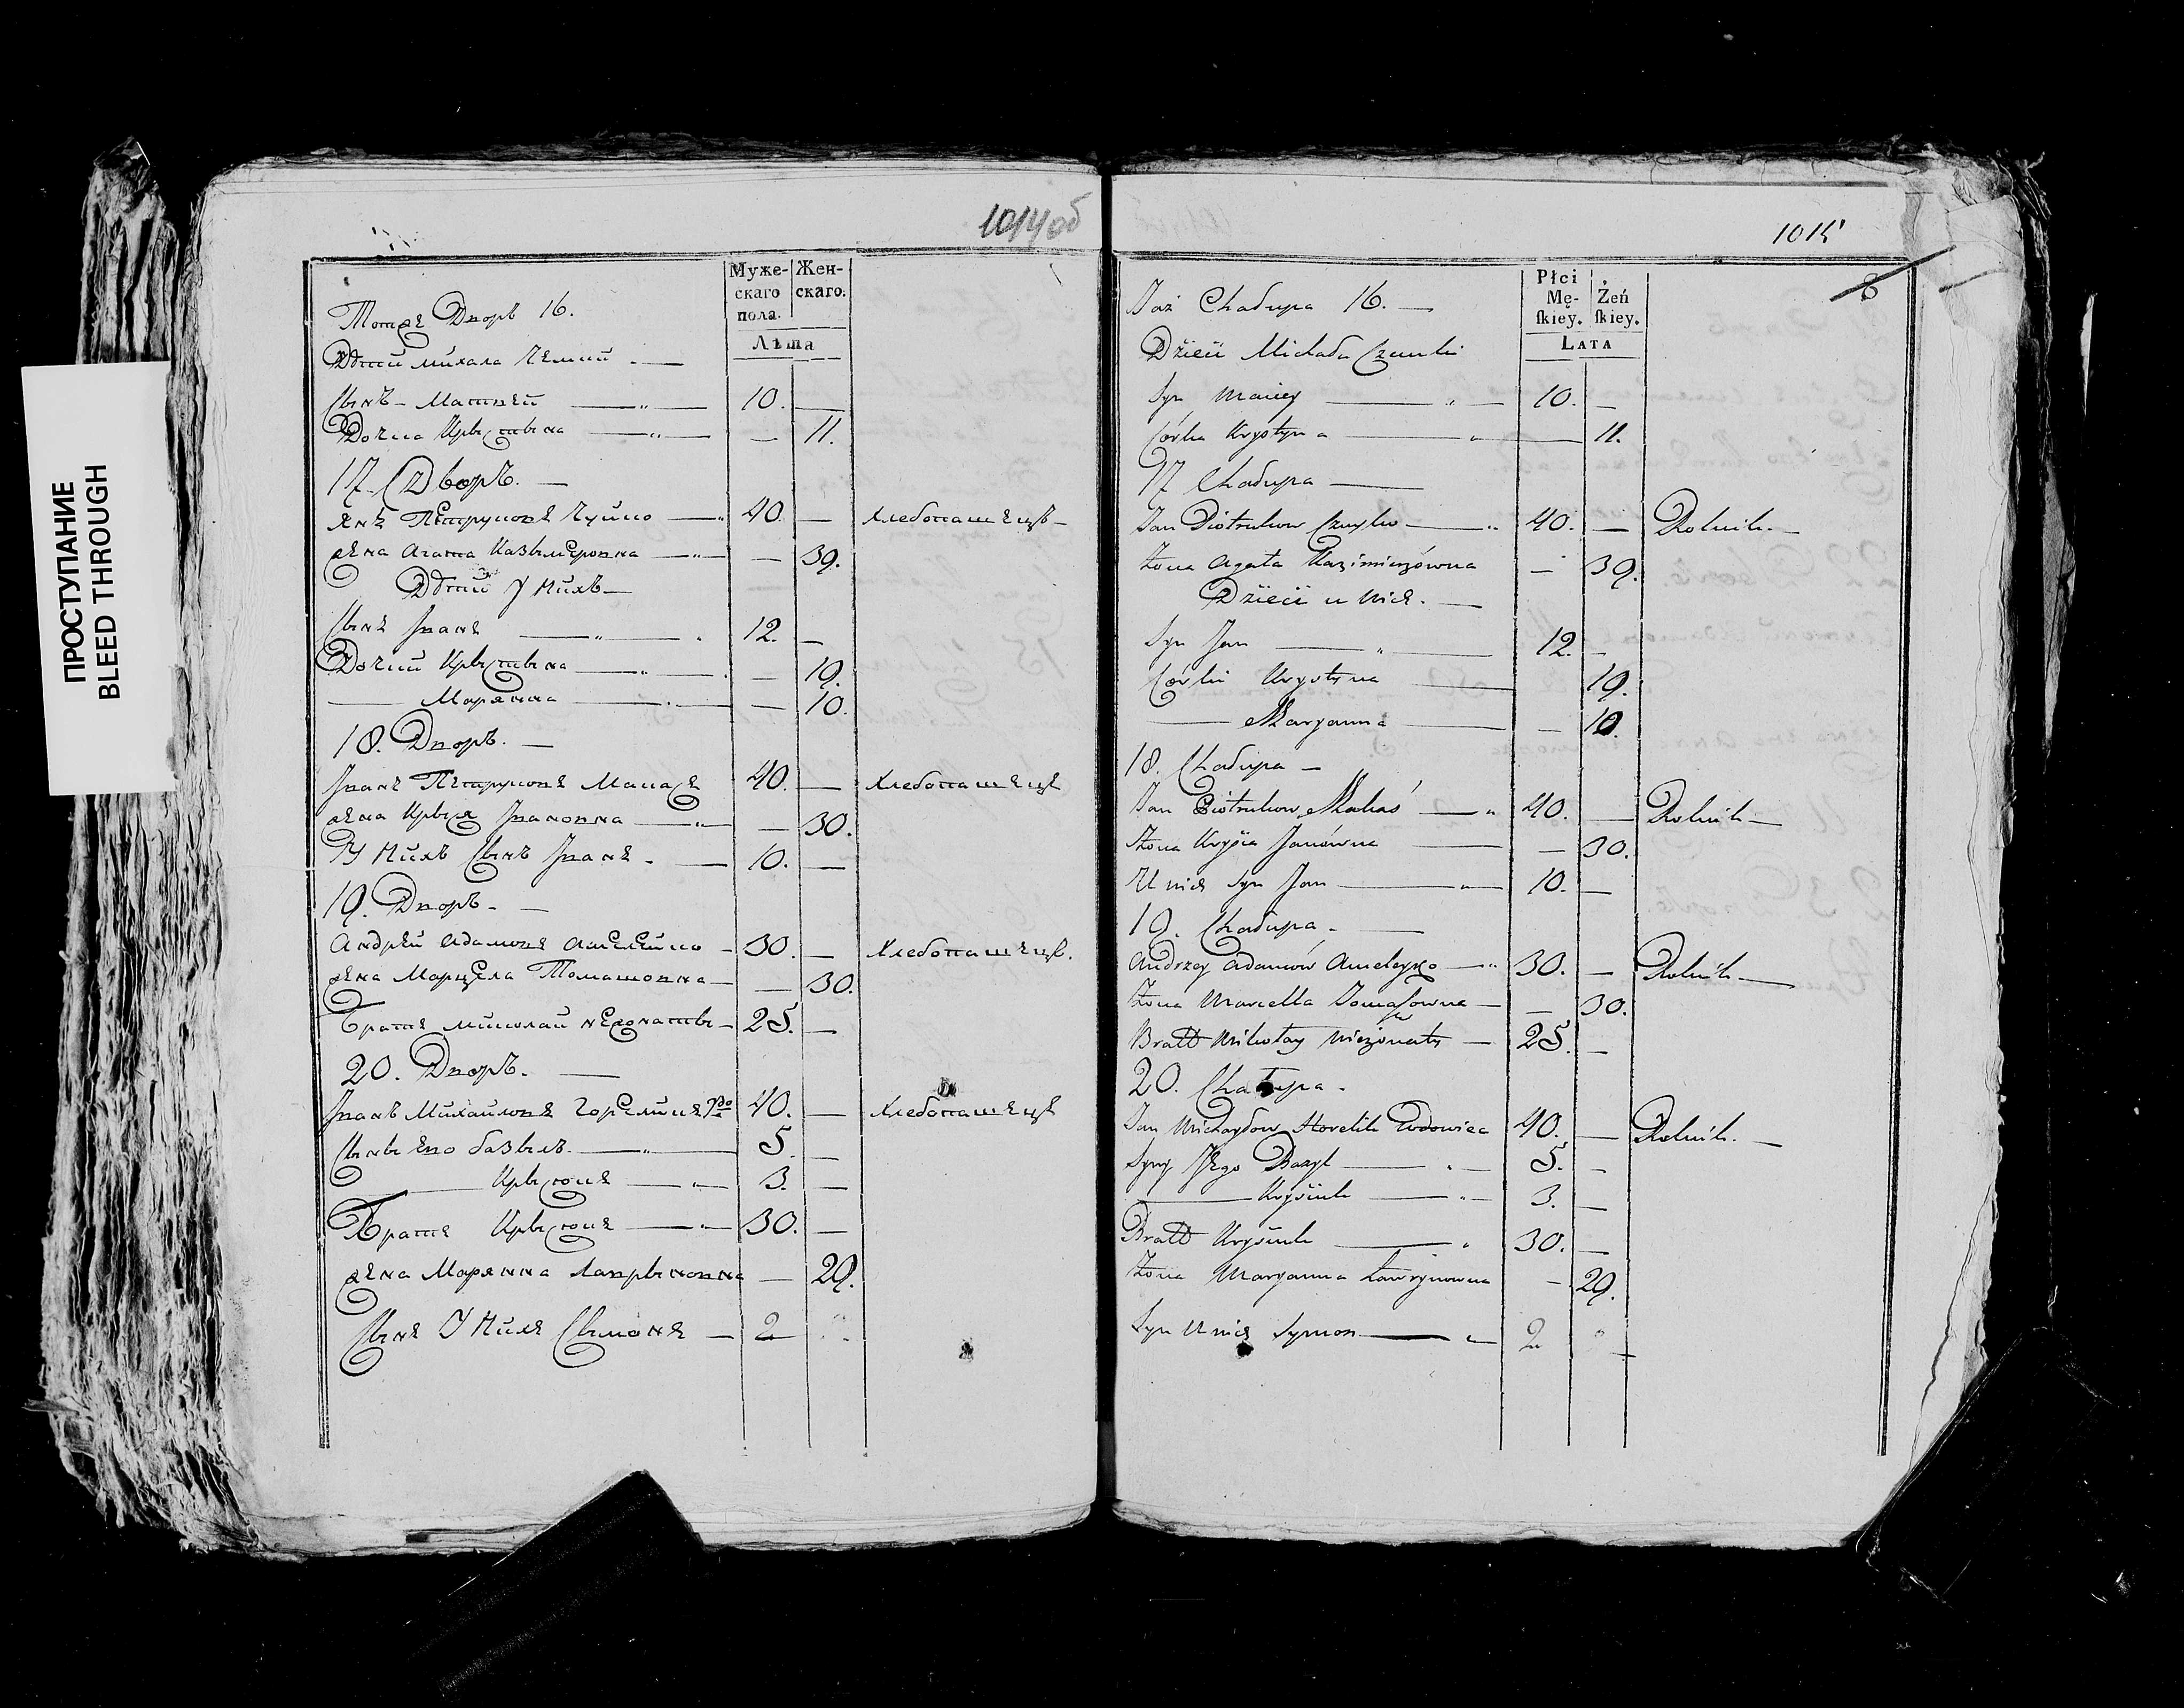 ПРОСТУПАНИЕ
BLEED THROUGH
1014об
Муже-
скаго
пола.
Жен-
скаго.
Лѣта
Тотже Дворъ 16.
Дѣти михала Чемки
Сынъ Матвей 10. —
Дочка Крыстына — 11.
17. Дворъ. —
Янъ Петруковъ Чуйко 40. — хлебопашецъ
жена Агата Казымеровна — 39.
Дѣти У Нихъ —
Сынъ Иванъ 12. —
Дочки Крыстына — 19.
— Марянна — 10.
18. Дворъ. —
Иванъ Петруковъ Макась 40. — Хлебопашецъ
жена Крыся Ивановна — 30.
У Нихъ Сынъ Иванъ 10. —
19. Дворъ. —
Андрей Адамовъ Амелейко 30. — Хлебопашецъ.
жена Марцела Томашовна — 30.
Братъ миколай нежонаты 25. —
20. Дворъ. —
Иванъ Михайловъ Гореликъ 40. — Хлебопашецъ
Сыны Его базыль 5. —
— Крысюкъ 3. —
Братъ Крысюкъ 30. —
жена Марянна Лаврыновна — 29.
Сынъ У Нихъ Сымонъ 2
1015
8
Płci
Mę-
ſkiey.
Żeń
ſkiey.
LATA
Taż Chałupa 16. —
Dzieci Michała Czemki
Syn Maciey 10. —
Córka Krystyna — 11.
17 Chałupa —
Jan Piotrukow Czuyko 40. — Rolnik. —
Żona Agata Kazimierzówna — 39.
Dzieci u nich. —
Syn Jan 12. —
Córki Krystyna 19.
— Maryanna — 10.
18. Chałupa —
Jan Piotrukow Makaś 40. — Rolnik —
Żona Krysia Janówna — 30.
U nich Syn Jan 10. —
19. Chałupa. —
Andrzey Adamów Ameleyko 30. — Rolnik —
Żona Marcella Tomaſzowna — 30.
Bratt Mikołay nieżonaty 25. —
20. Chałupa.
Jan Michayłow Horelik Wdowiec 40. — Rolnik. —
Syny Jego Bazyl 5. —
— Krysiuk 3. —
Bratt Krysiuk 30. —
Żona Maryanna Ławrynowna — 29.
Syn U nich Symon 2